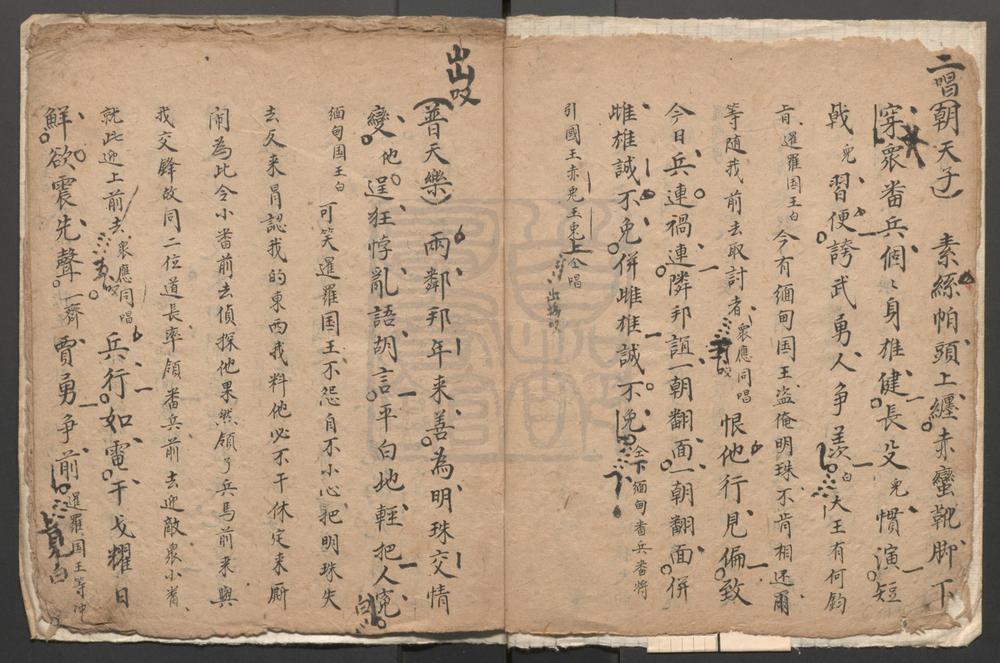 二唱(朝天子)　素絲帕頭上纏赤蠻靴脚下
穿衆畨兵個〻身雄健長殳完慣演短
戟完習便誇武勇人争羨白大王有何鈞
肯暹羅国王白今有緬甸国王盗俺明珠不肯相还爾
等随我前去取討者衆應同唱恨他行見偏致
今日兵連禍連隣邦誼一朝翻面一朝翻面併
雌雄誠不免併雌雄誠不免仝下緬甸畨兵畨将
引國王赤兎王上仝唱
出吹
(普天樂)兩鄰邦年来善為明珠交情
變他逞狂悖亂語胡言平白地輕把人寃白
緬甸国王白可笑暹羅国王不怨自不小心把明珠失
去反来冐認我的東西我料他必不干休定来厮
闹為此令小畨前去偵探他果然領了兵馬前来與
我交鋒故同二位道長率領畨兵前去迎敵衆小畨
就此迎上前去衆應同唱兵行如電干戈耀日
鮮欲震先聲一齊賈勇争前暹羅国王等冲
見白